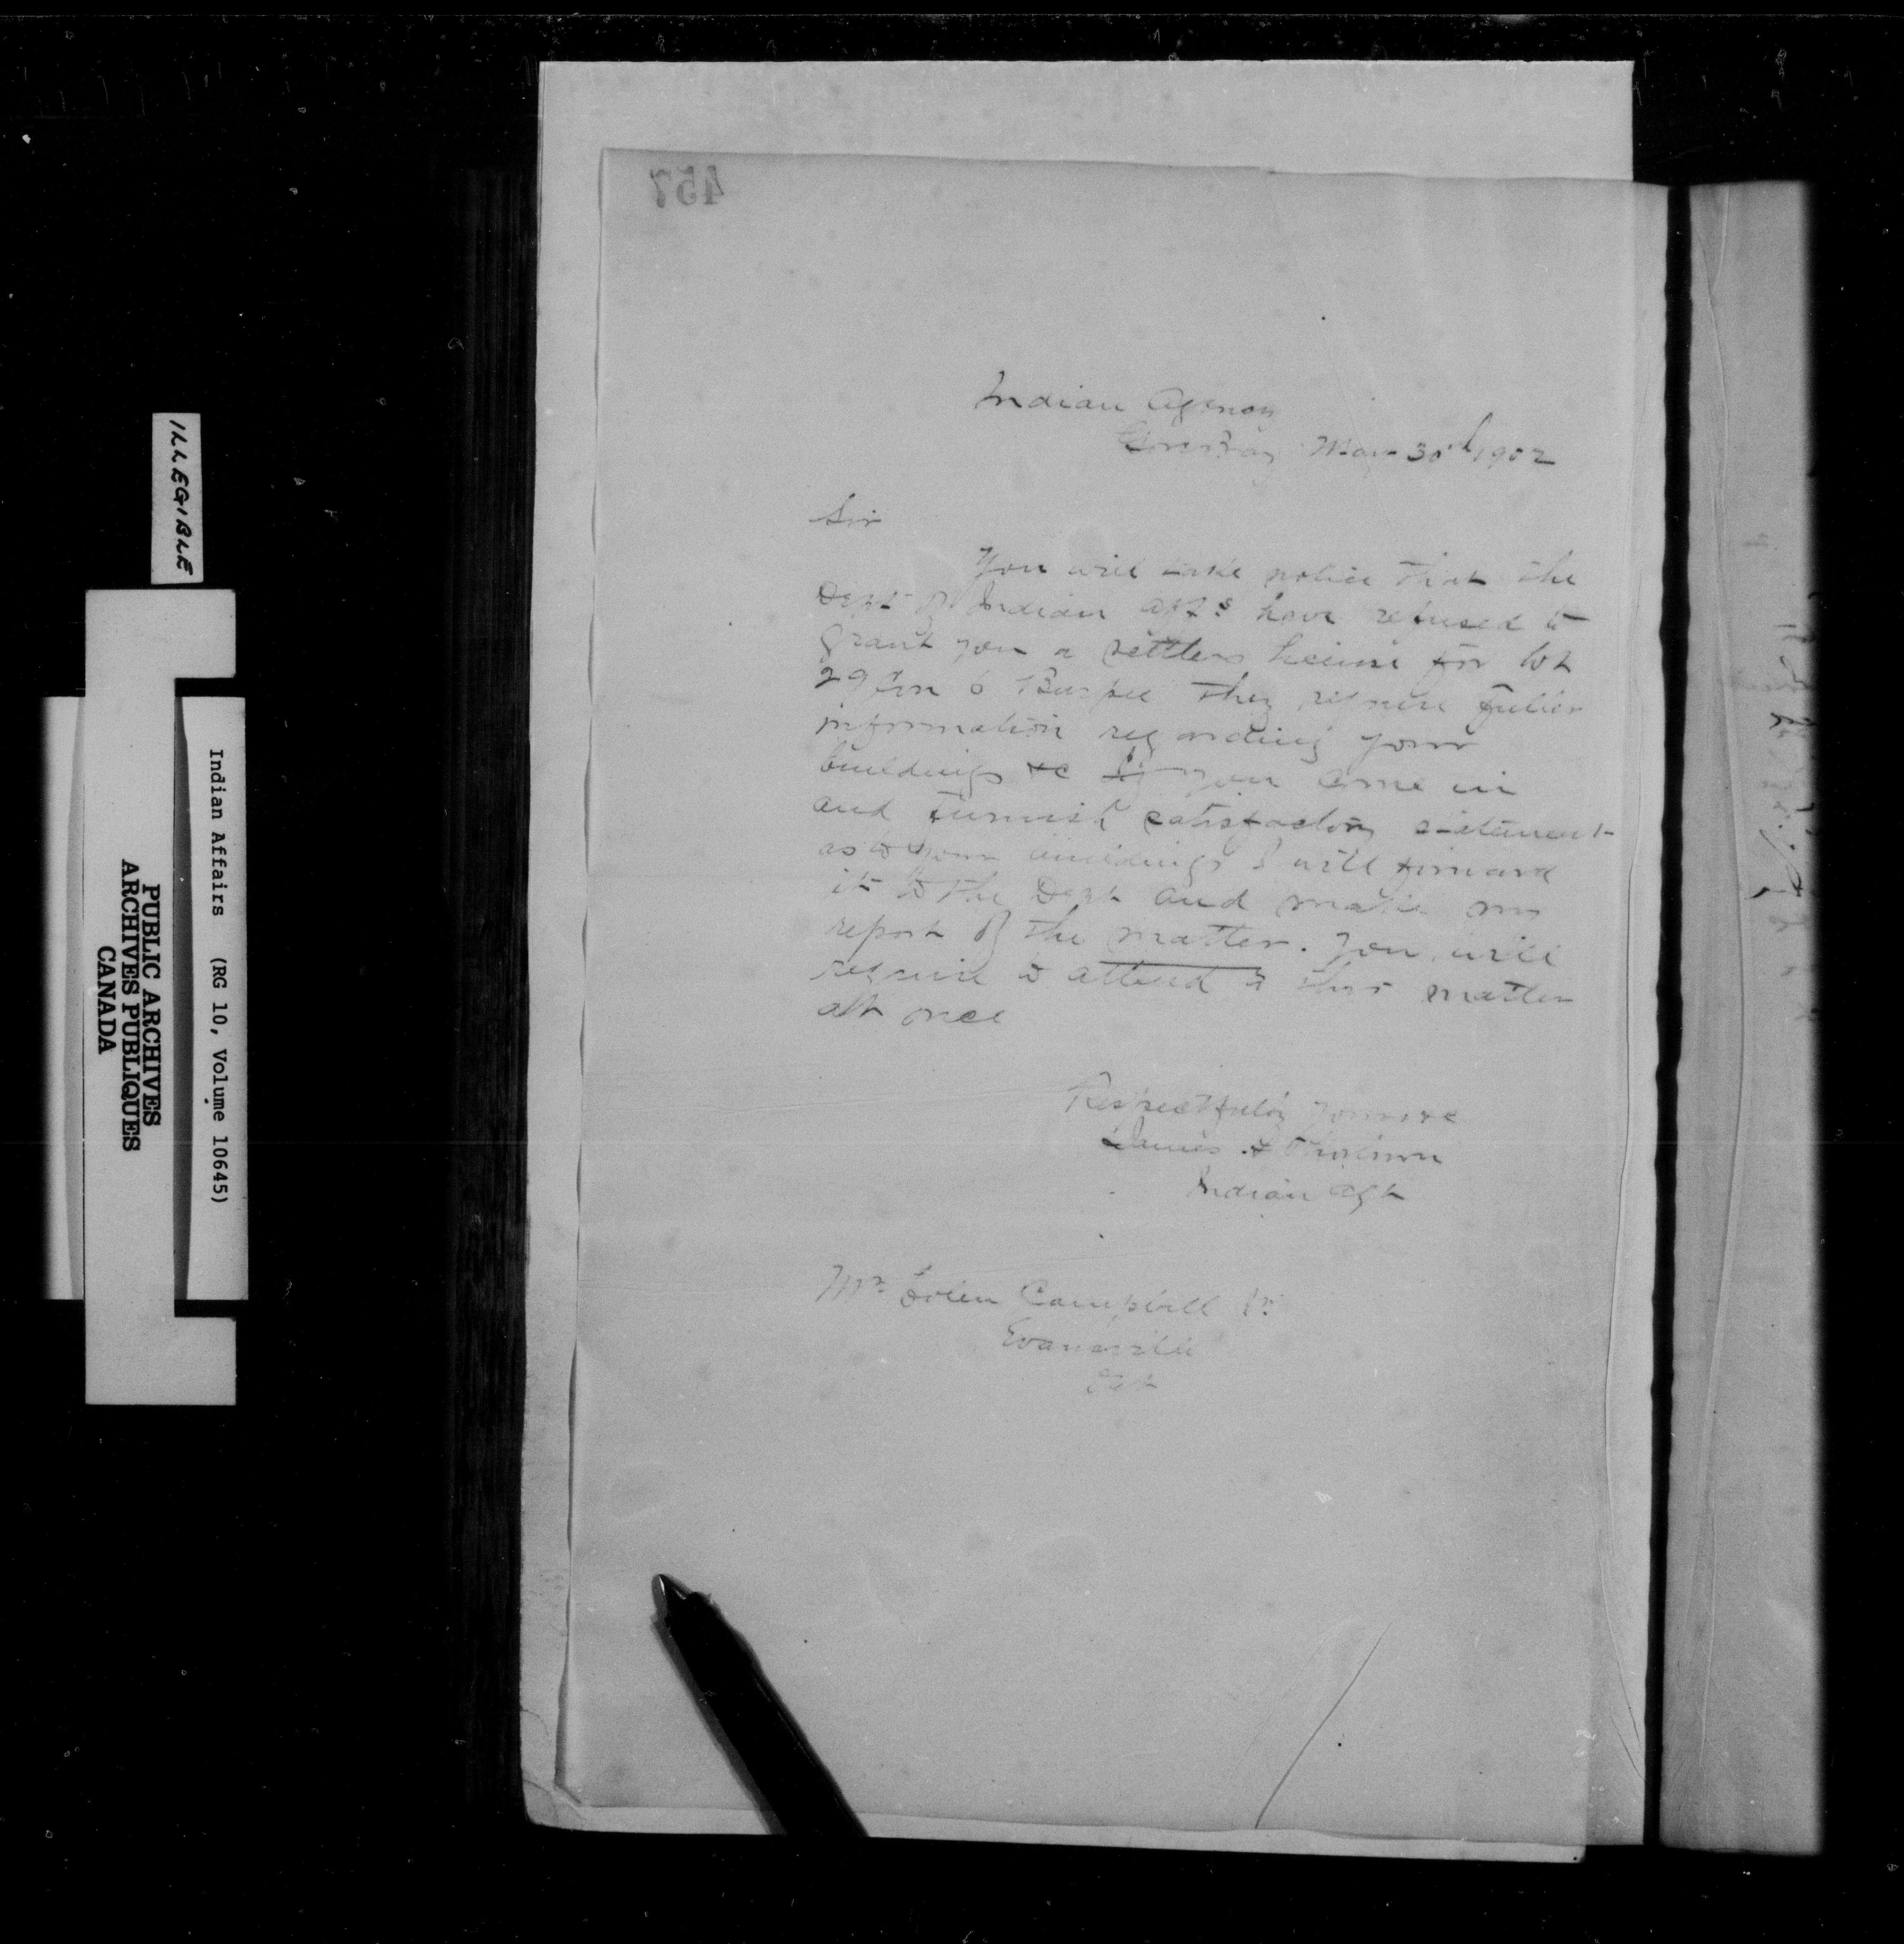 457
Indian Agency
Gore Bay May 30th 1902
Sir
You will take notice that the
Dept of Indian Affs have refused to
grant you a settlers license for lot
29 Con 6 Burpee They require fuller
information regarding your
buildings &c If you come in
and furnish satisfactory statement
as to your buildings I will forward
it to the Dept and make my
report of the matter. You will
require to attend to this matter
att once
Respectfully yours &c
James
Indian Agt
Mr Campbell Sr
Evansville
Ont
ILLEGIBLE
Indian Affairs (RG 10, Volume 10645)
PUBLIC ARCHIVES
ARCHIVES PUBLIQUES
CANADA